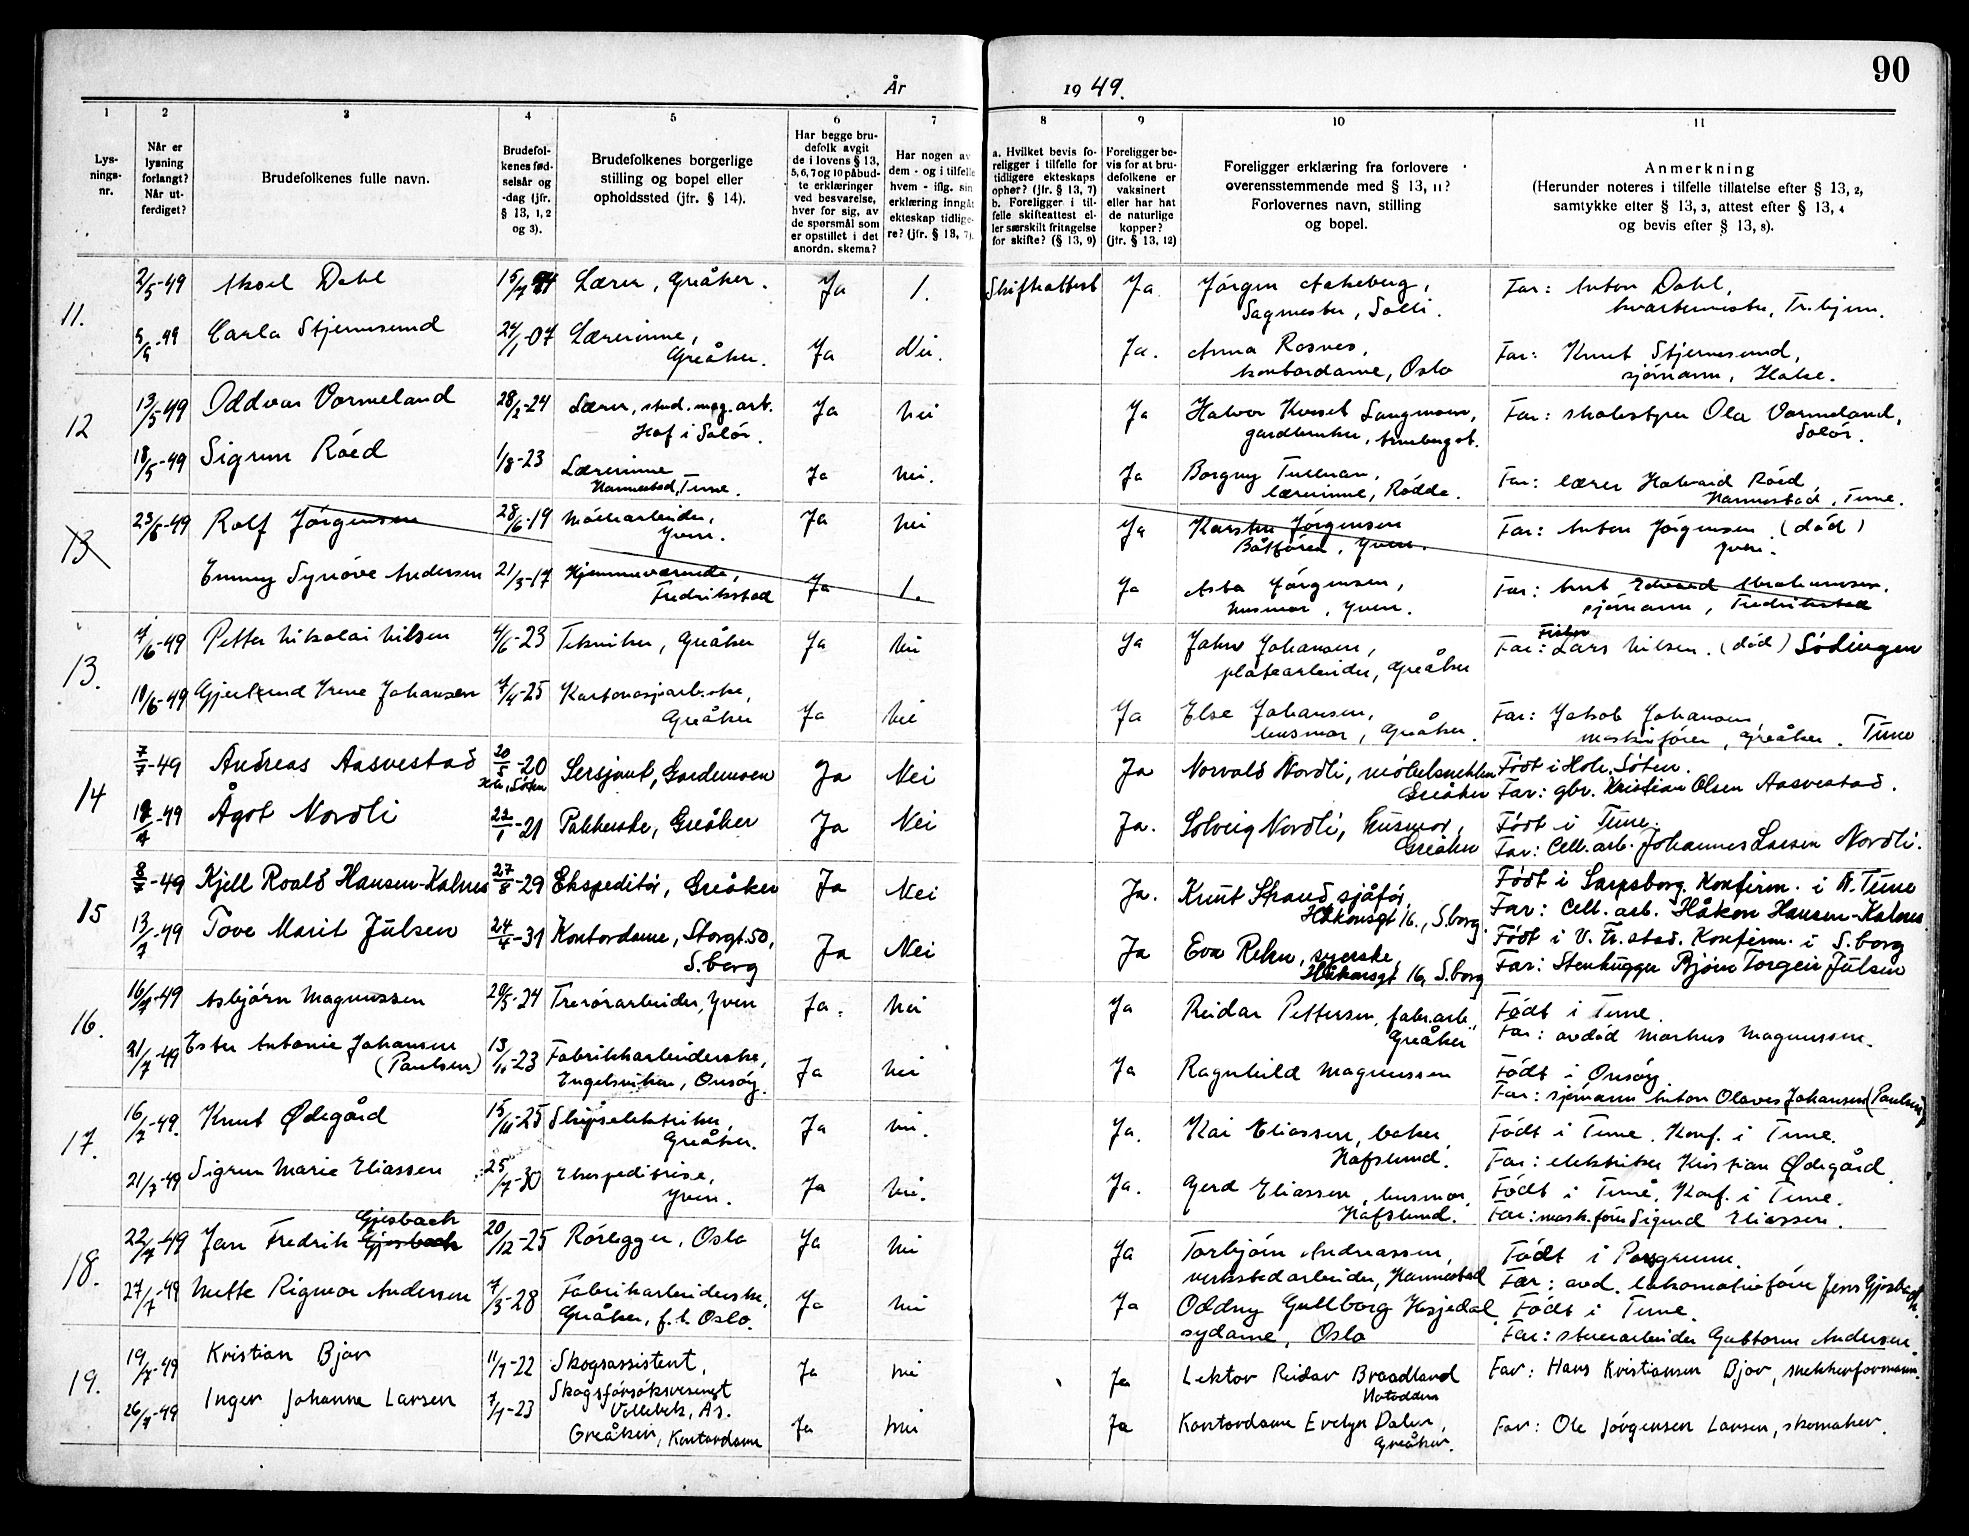 90
År
19 49.
1
2
3
4
5
6
7
8
9
10
11
Lys-
nings-
nr.
Når er
lysning
forlangt?
Når ut-
ferdiget?
Brudefolkenes fulle navn.
Brudefol-
kenes fød-
selsår og
-dag (jfr.
§ 13, 1, 2
og 3).
Brudefolkenes borgerlige
stilling og bopel eller
opholdssted (jfr. § 14).
Har begge bru-
defolk avgit
de i lovens § 13,
5, 6, 7 og 10 påbud-
te erklæringer
ved besvarelse,
hver for sig, av
de spørsmål som
er opstillet i det
anordn. skema?
Har nogen av
dem - og i tilfelle
hvem - iflg. sin
erklæring inngått
ekteskap tidlige-
re? (jfr. § 13, 7).
a. Hvilket bevis fo-
religger i tilfelle for
tidligere ekteskaps
ophør? (jfr. § 13, 7)
b. Foreligger i til-
felle skifteattest el-
ler særskilt fritagelse
for skifte? (§ 13, 9)
Foreligger be-
vis for at bru-
defolkene er
vaksinert
eller har hat
de naturlige
kopper?
(jfr. § 13, 12)
Foreligger erklæring fra forlovere
overensstemmende med § 13, 11?
Forlovernes navn, stilling
og bopel.
Anmerkning
(Herunder noteres i tilfelle tillatelse efter § 13, 2,
samtykke efter § 13, 3, attest efter § 13, 4
og bevis efter § 13, 8).
11.
2/5-49 Aksel Dahl Lærer, Greåker. Ja 1. Skifteattest Ja Jørgen Aakeberg,
Sagmester, Solli.
Far: Anton Dahl,
kvartermester, Tr.hjem.
Carla Stjernesund 24/1-07 Lærerinne,
Greåker. Ja Nei. Ja. Anna Rosnes,
kontordame, Oslo
Far: Knut Stjernesund,
sjømann, Halse.
12
13/5-49 Oddvar Vormeland 28/2-24 Lærer, stud. mag. art.
Hof i Solør. Ja Nei Ja
gardbruker,
Far: skolestyrer Ola Vormeland,
Solør.
18/5-49 Sigrun Röed 1/8-23 Lærerinne
Hannestad, Tune. Ja Nei. Ja Borgny Tullnan,
lærerinne, Rödde.
Far: lærer Halvard Röed
Hannestad, Tune.
13
23/5-49 Rolf Jörgensen 28/6-19
Yven. Ja Nei Ja Karsten Jörgensen
Båtfører, Yven.
Far: Anton Jörgensen (död)
Yven.
Emmy Synöve Andersen 21/3-17 Hjemmeværende,
Fredrikstad Ja 1. Ja Asta Jörgensen,
husmor, Yven.
Far: Edvard Abrahamsen,
sjømann, Fredrikstad
13.
7/6-49 Petter Nikolai Nilsen 4/6-23 Tekniker, Greåker Ja Nei Ja John Johansen,
platearbeider, Greåker
Fisker
Far: Lars Nilsen. (død) Lödingen
11/6-49 Gjertrud Irene Johansen 7/4-25 Kartonasjearb.ske,
Greåker Ja Nei Ja Else Johansen,
husmor, Greåker.
Far: Jakob Johansen,
maskinfører, Greåker. Tune
14
7/7-49 Andreas Aasvestad 20/5-20 Sersjant, Gardemoen Ja Nei Ja Norvald Nordli, møbelsnekker
Greåker
Født i Hole.
Far: gbr. Kristian Olsen Aasvestad.
Ågot Nordli 22/1-21 Pakkerske, Greåker Ja Nei Ja. Solveig Nordli, husmor,
Greåker
Født i Tune.
Far: Cell. arb. Johannes Larsen Nordli.
15
8/7-49 Kjell Roald Hansen-Kalnes 27/8-29 Ekspeditør, Greåker Ja Nei Ja. Knut Strand, sjåför,
Håkonsgt 16., S.borg.
Født i Sarpsborg. Konfirm. i N. Tune
Far: Cell. arb. Håkon Hansen-Kalnes
13/7-49 Tove Marit Julsen 24/4-31 Kontordame, Storgt. 50,
S.borg Ja Nei Ja Eva Rehn, syerske,
Håkonsgt 16, S.borg
Født i V. Fr.stad. Konfirm. i S.borg
Far: Stenhugger Bjørn Torgeir Julsen
16.
16/7-49 Asbjörn Magnussen 20/5-24 Trerörarbeider, Yven Ja. Nei Ja Reidar Pettersen, fabr.arb.,
Greåker
Född i Tune.
Far: avdöd Markus Magnussen.
21/7-49 Ester Antonie Johansen
(Paulsen) 13/11-23 Fabrikkarbeiderske,
Engelsviken, Onsöy. Ja Nei Ja Ragnhild Magnussen
Född i Onsöy
Far: sjömann Anton Olaves Johansen (Paulsen)
17.
16/7-49. Knut Ødegård 15/11-25 Skipselektriker,
Greåker. Ja Nei. Ja. Kai Eliassen, baker
Hafslund.
Född i Tune. Konf. i Tune.
Far: elektriker Kristian Ødegård.
21/7-49 Sigrun Marie Eliassen 25/7-30 Ekspeditrise,
Yven. Ja Nei. Ja. Gerd Eliassen, husmor,
Hafslund.
Född i Tune. Konf. i Tune.
Far: mask.fører Sigurd Eliassen.
18.
Gjesbach
22/7-49 Jan Fredrik Gjosbach 20/12-25 Rörlegger, Oslo Ja Nei Ja Torbjörn Andreassen,
verkstedarbeider, Hannestad
Född i Porsgrunn.
Far: avd. lokomotivförer Jens Gjesbach.
27/7-49 Mette Rigmor Andersen 7/3-28 Fabrikarbeiderske,
Greåker, f.t. Oslo. Ja Nei Ja Oddny Gullborg Hesjedal
sydame, Oslo
Född i Tune.
Far: stuerarbeider Guttorm Andersen.
19.
19/7-49 Kristian Bjor 11/7-22 Skogsassistent,
Skogsforsöksvesenet
Vollebekk, Ås. Ja Nei Ja Lektor Reidar Braadland
Notodden
Far: Hans Kristiansen Bjor, snekkerformann.
26/7-49 Inger Johanne Larsen 7/7-23
Greåker, Kontordame Ja Nei Ja Kontordame Evelyn Dalen,
Greåker.
Far: Ole Jörgensen Larsen, skomaker.